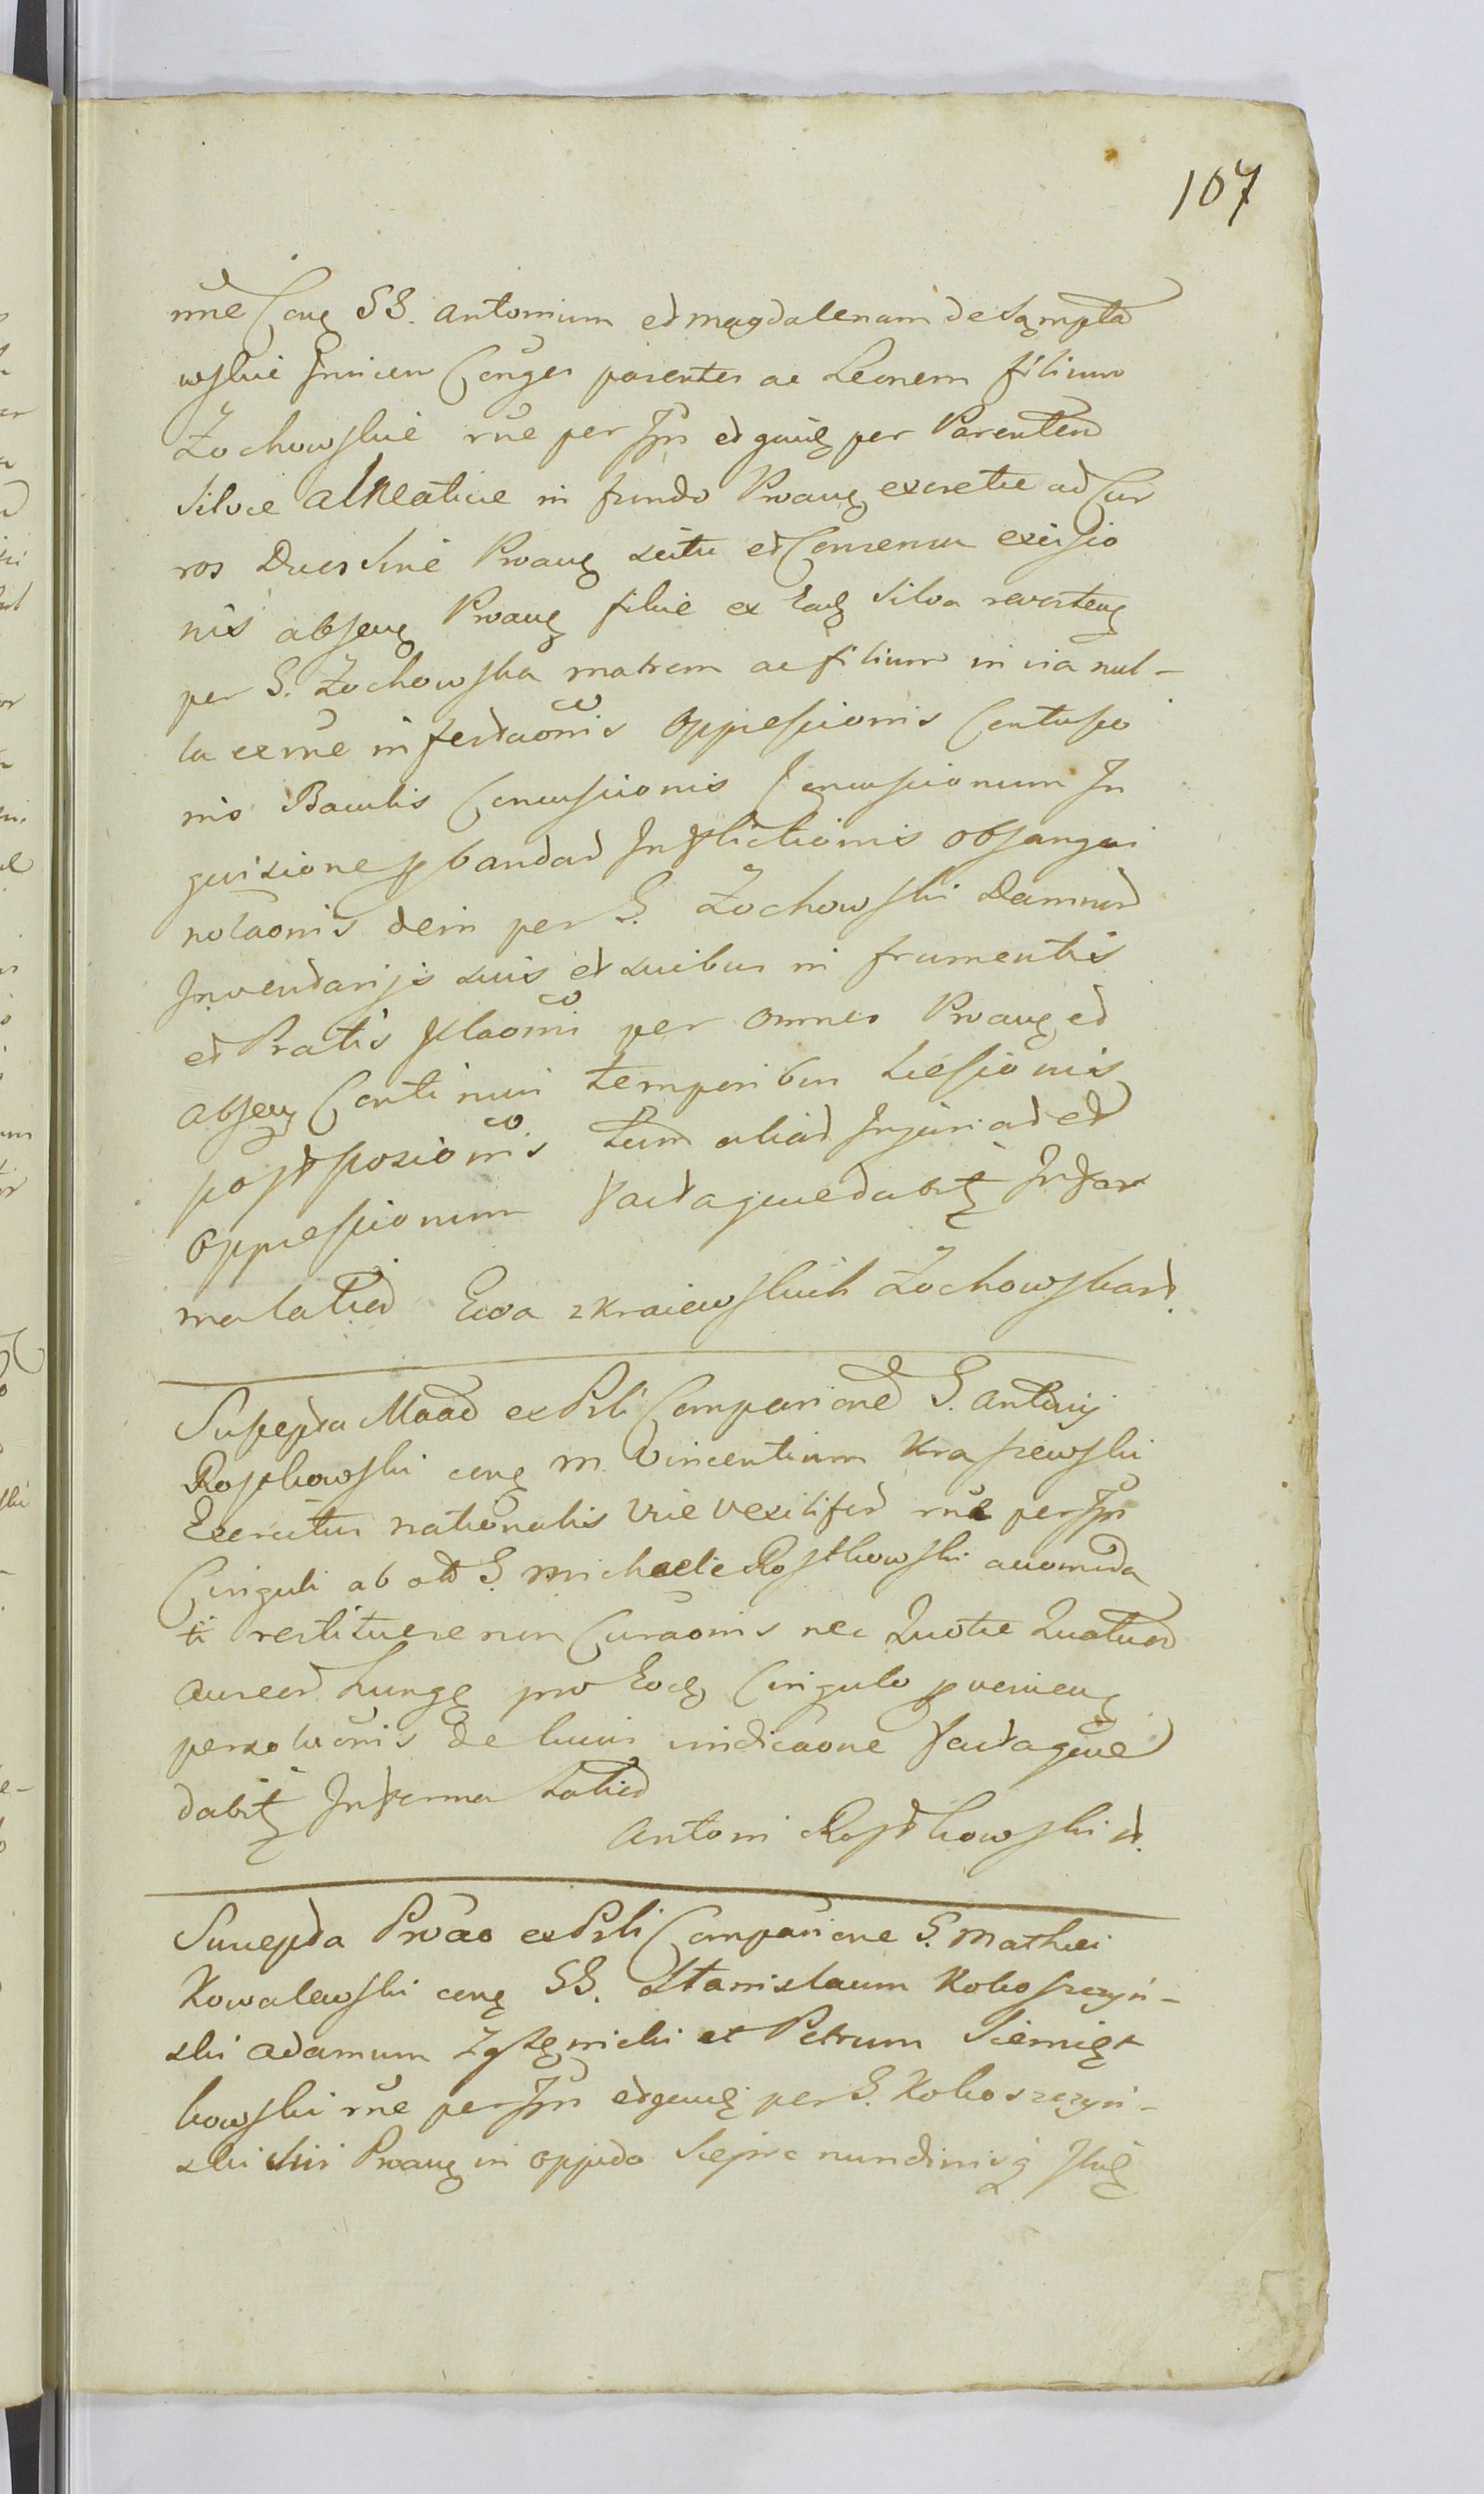 107
nne Cong SS. Antonium et Magdalenam de Sąmpta
wskie Invicem Conges parentes ac Leonem filium
Zochowskie rne per Ipn et gnuę per Parentem
Silvae alneatice in fundo Proang excretae ad Cur
ros Duos sine Proang scitu et Consensu excisio
nis abseng Proang filiae ex Eadę Silva reverteng
per G. Zochowska matrem ac filium in via nul-
la exrne infestaonis Oppressionis Contusio
nis Baculis Concussionis Concussionum In
quisione pbandad Inflictionis obsangvi
nolaonis dein per G. Zochowski Damnor
Inventarijs suis et suibus in frumentis
et Pratis plaonis per omnes Proang et
abseng Continui temporibus Laesionis
postposionis tum aliad Injuriad et
Oppressionum factaquedabitę Infor
malatied Ewa z Kraiewskich Zochowskad.
Suscepta Maad ex Prli Comparicone G. Antonij
Rostkowski cong M. Vincentium Kraszewski
Exercitus nationalis Vice Vexilifed rne per Ipn
Cinguli ab olt G. Michaele Rostkowski accomoda
ti restituere non Curaonis nec Quotae Quatuor
aureor Hungę pro Eodę Cingulo pvenieng
persoluonis de huius vindicaone factaque
dabitę Informa Latied
Antoni Rostkowski d.
Suscepta Proao ex Prli Comparicone G. Mathei
Kowalewski cong SS. Stanislaum Kokoszczyń-
ski Adamum et Petrum Siemięt
kowski rne per Ipn etgnuę per G. Kokoszczyń-
ski sui Proang in oppido nundinisq